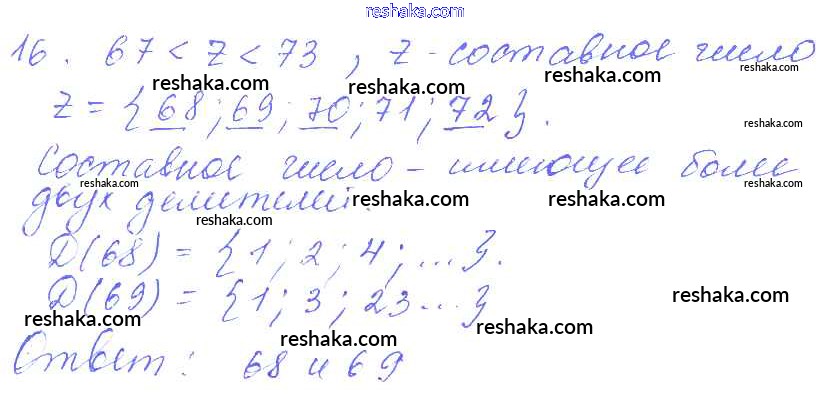 reshaka.com
16. 67 < z < 73, z - составное число
reshaka.com reshaka.com reshaka.com
z = {68; 69; 70; 71; 72}.
reshaka.com reshaka.com reshaka.com
Составное число - имеющее более
reshaka.com reshaka.com reshaka.com
двух делителей.
reshaka.com
D(68) = {1; 2; 4; ...}.
D(69) = {1; 3; 23...}
reshaka.com reshaka.com reshaka.com
reshaka.com
Ответ: 68 и 69